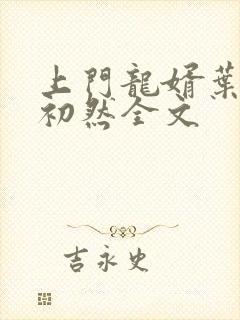 上門龍婿葉
初然全文
吉永史